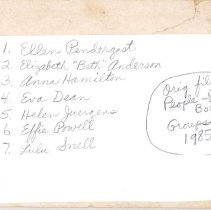 1. Ellen Pendergast
2. Elizabeth "Beth" Anderson
3. Anna Hamilton
4. Eva Dean
5. Helen Juergens
6. Effie Powell
7. Lulu Snell
Orig. file
People-
Groups
1985